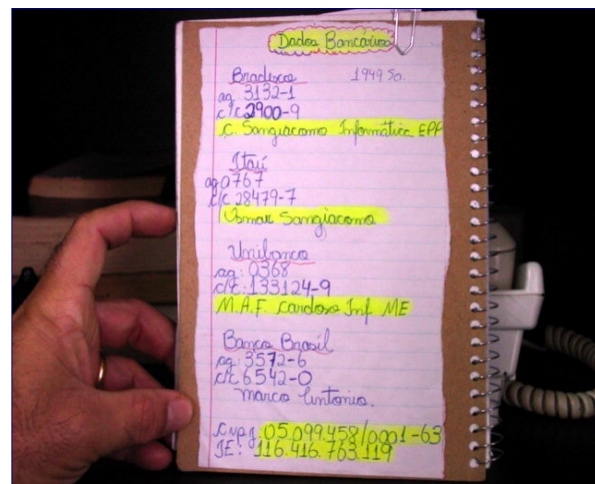 Dados Bancários
Bradesco 1949 So.
ag. 3132-1
c/c 2900-9
C. Sangiacomo Informática EPP
Itaú
ag 0767
c/c 28479-7
Osmar Sangiacomo
Unibanco
ag: 0368
c/c: 133124-9
M.A.F. Cardoso Inf ME
Banco Brasil
ag: 3572-6
c/c 6542-0
Marco Antonio.
Cnpj: 05.099.458/0001-63
IE: 116.416.763.119